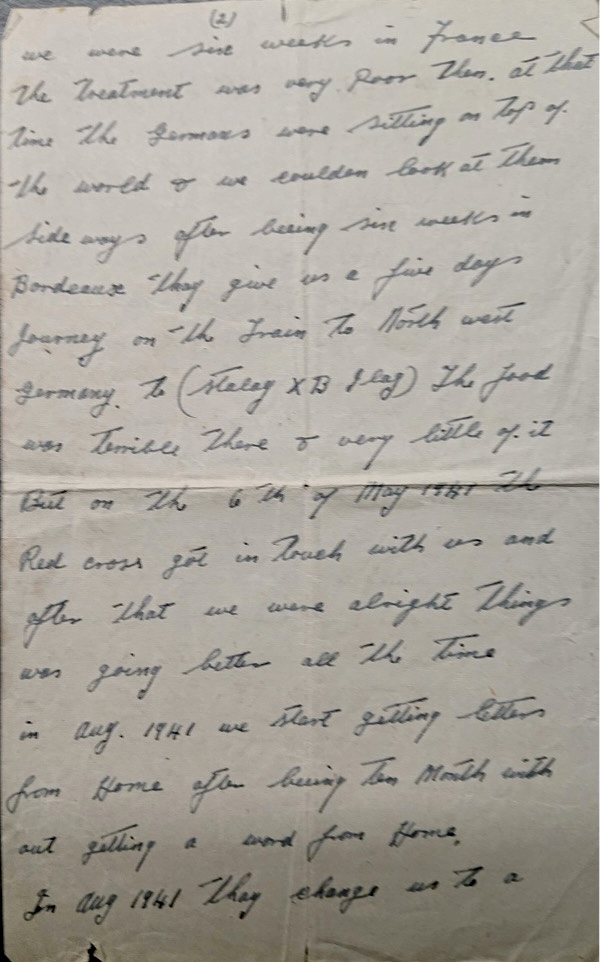 (2)
we were six weeks in France
the treatment was very Poor then. at that
time the Germans were sitting on top of.
the world & we coulden look at them
side ways after beeing six weeks in
Bordeaux thay give us a five days
Journey on the Train to North west
Germany. to (stalag XB Ilag) The food
was terrible there & very little of it
But on the 6 th of May 1941 the
Red cross got in touch with us and
after that we were alright things
was going better all the time
in Aug. 1941 we start getting letters
from Home after beeing ten Month with
out getting a word from Home.
In Aug 1941 thay change us to a